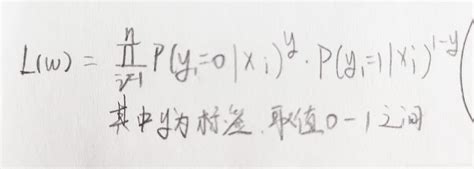 L(w) = ∏_{i=1}^{n} P(y_i=0|x_i)^y · P(y_i=1|x_i)^{1-y} (
其中y为标签.取值0-1之间